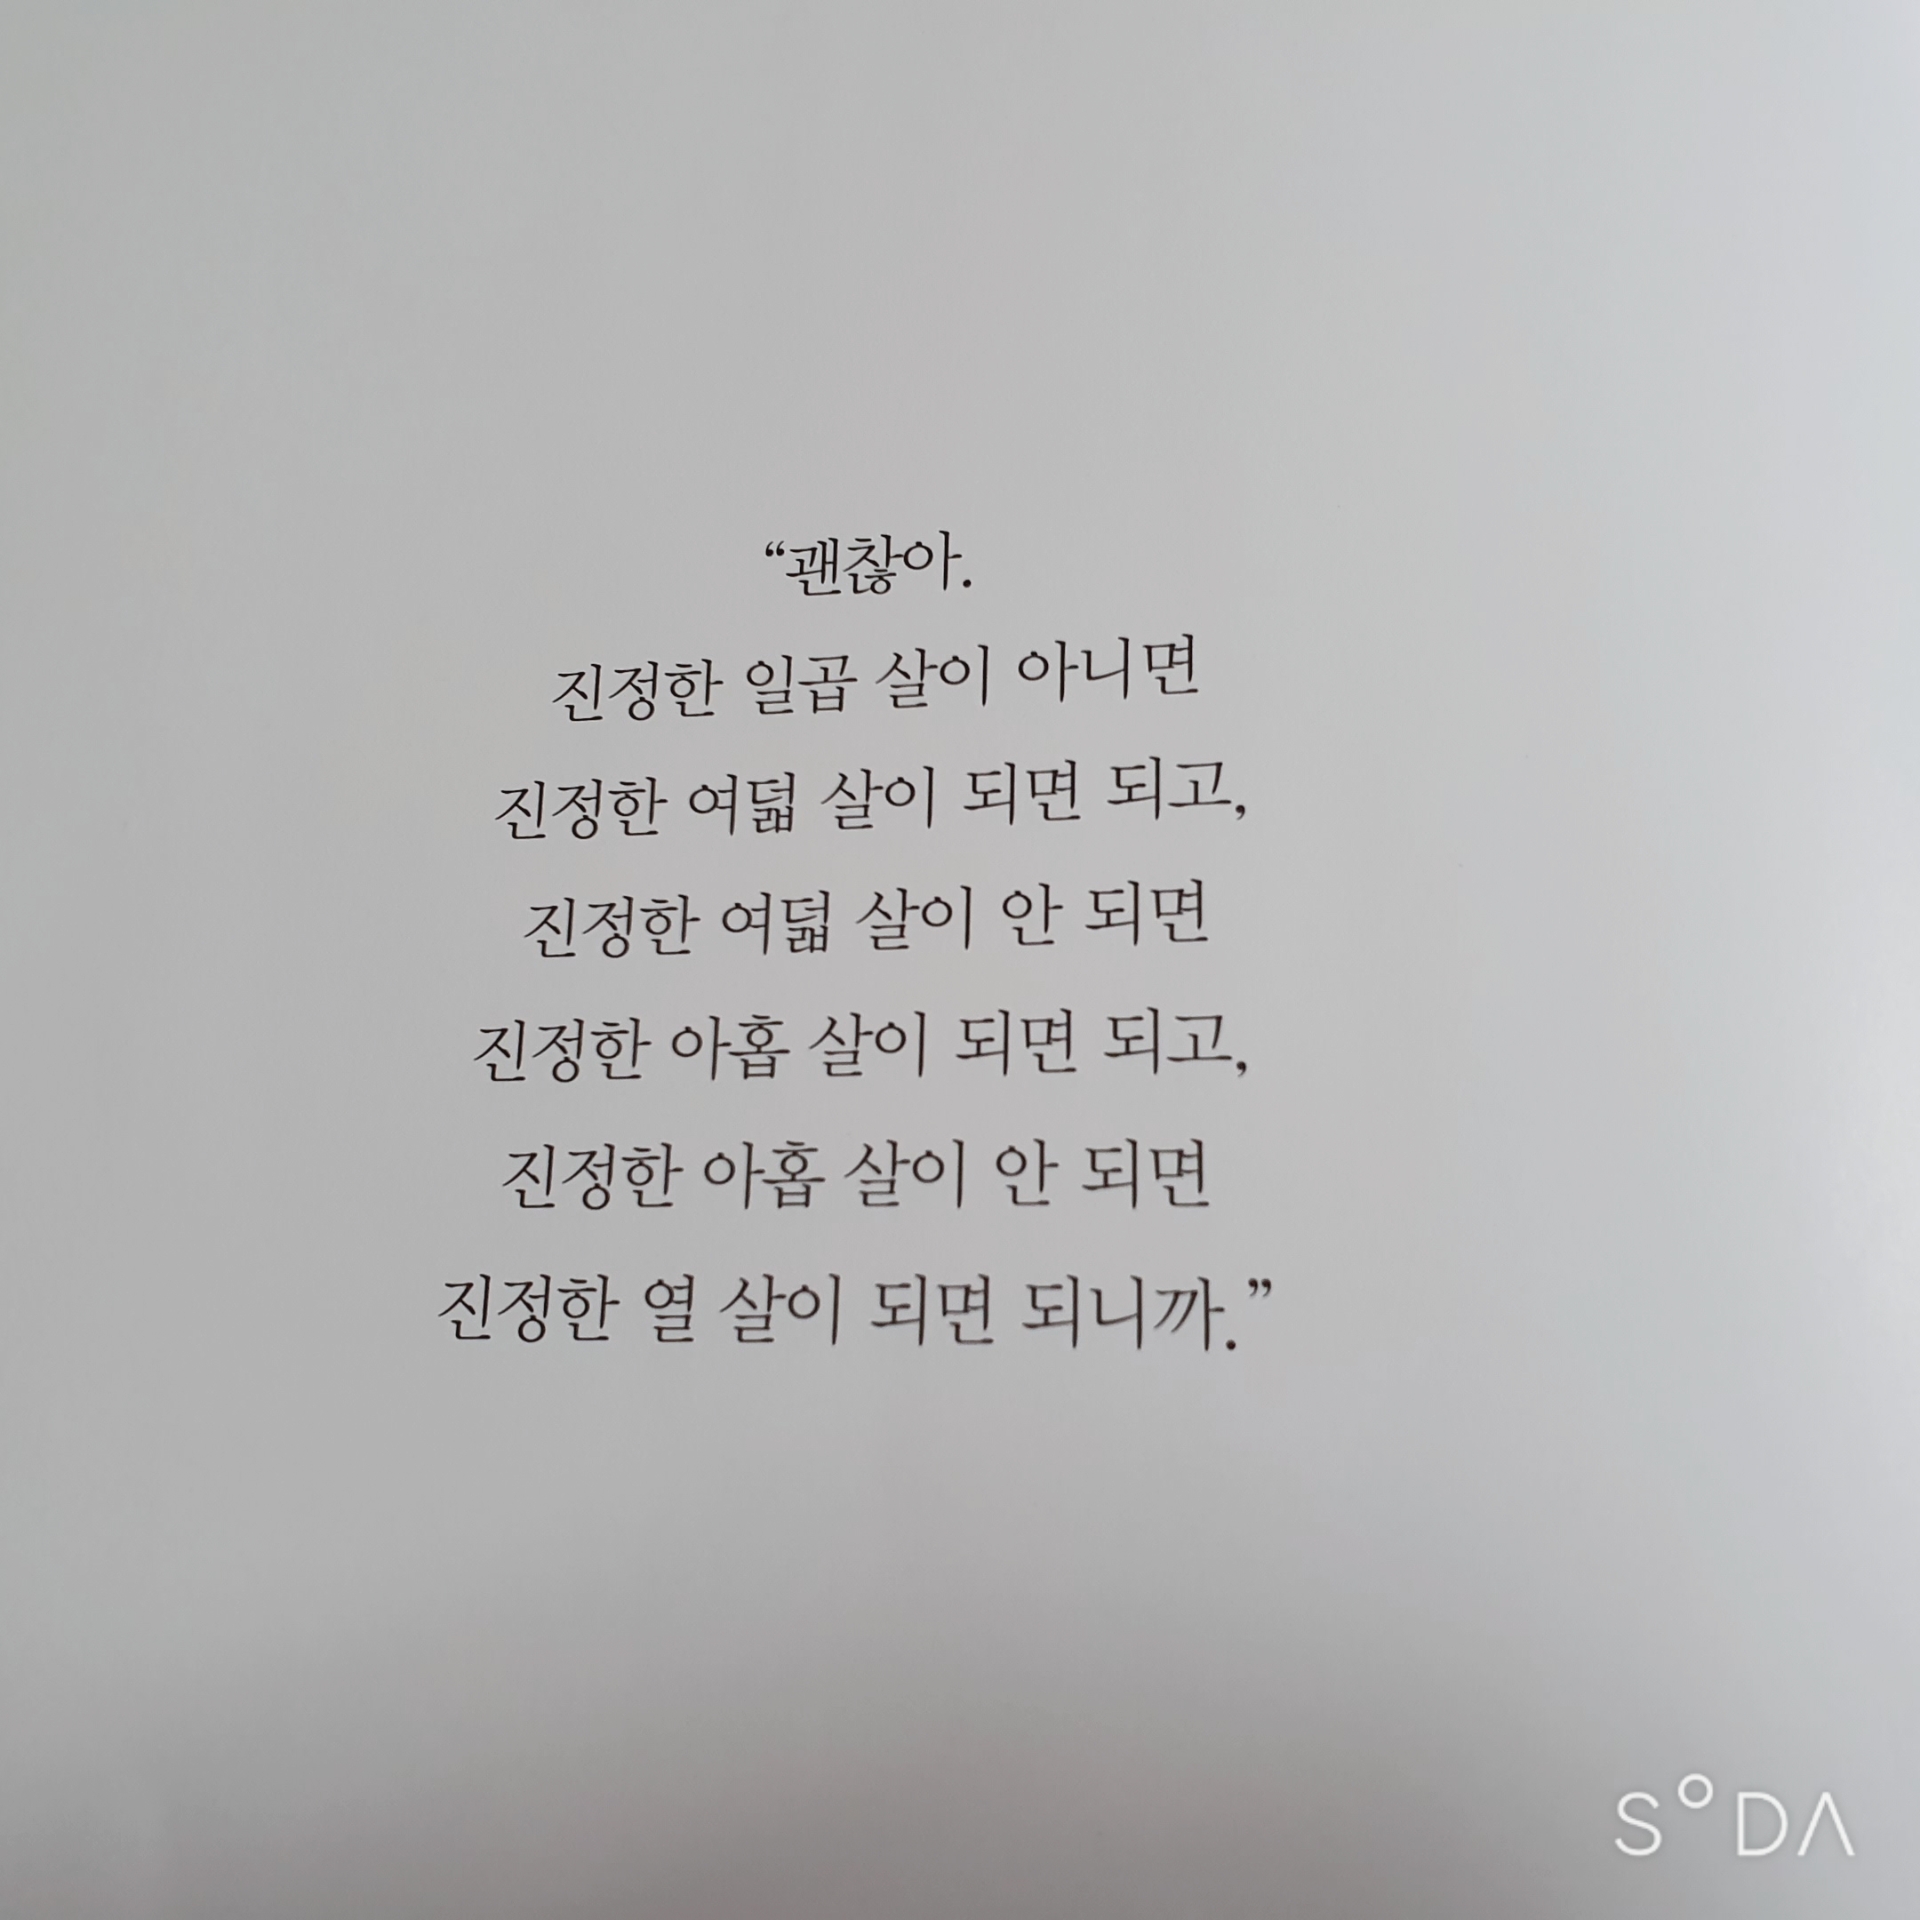 “괜찮아.
진정한 일곱 살이 아니면
진정한 여덟 살이 되면 되고,
진정한 여덟 살이 안 되면
진정한 아홉 살이 되면 되고,
진정한 아홉 살이 안 되면
진정한 열 살이 되면 되니까.”
SODA